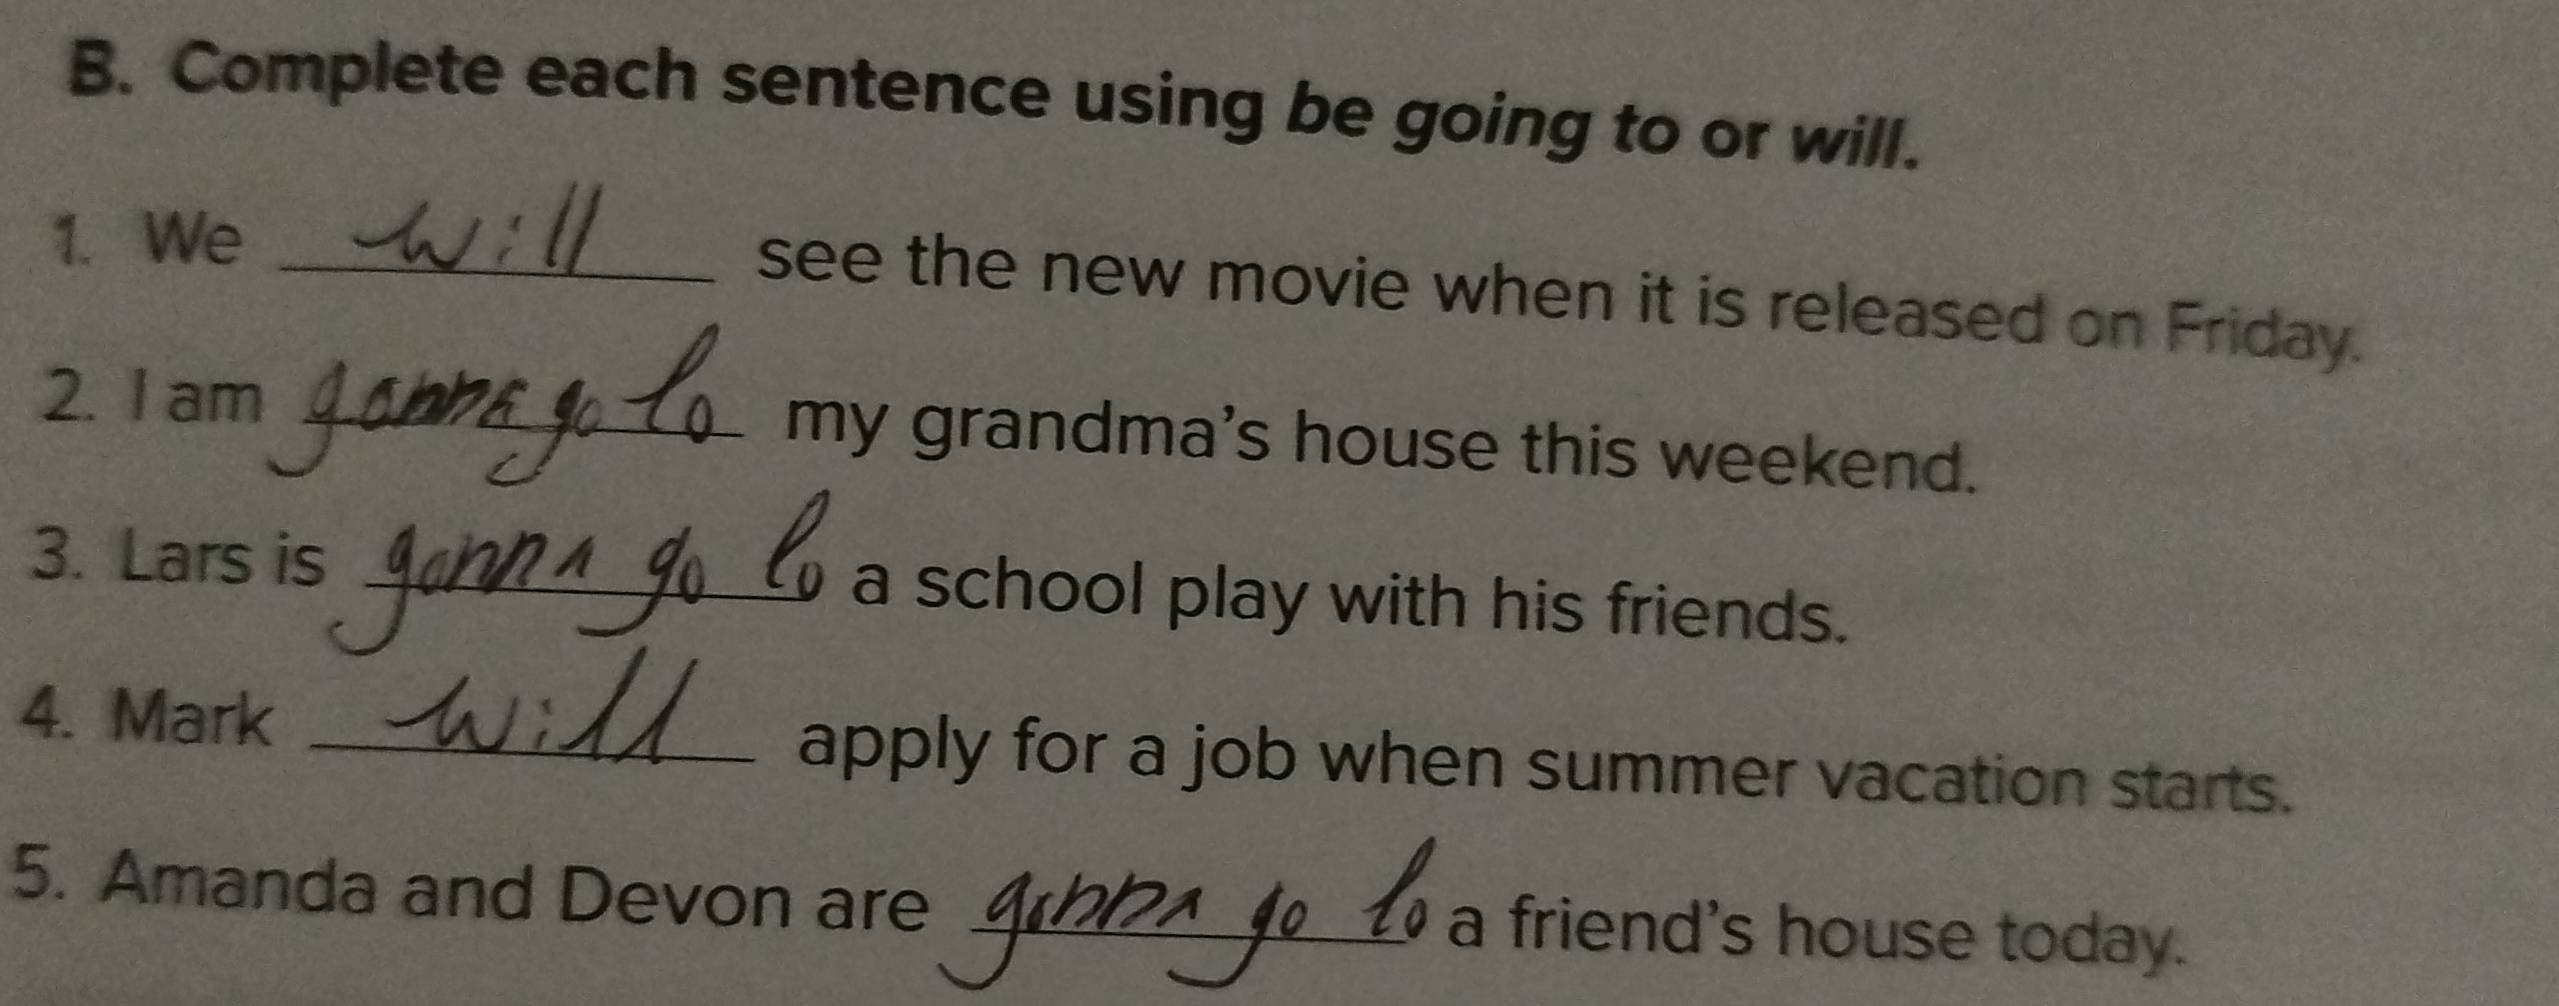 B. Complete each sentence using be going to or will.
1. We will see the new movie when it is released on Friday.
2. I am gonna go to my grandma's house this weekend.
3. Lars is gonna go to a school play with his friends.
4. Mark will apply for a job when summer vacation starts.
5. Amanda and Devon are gonna go to a friend's house today.